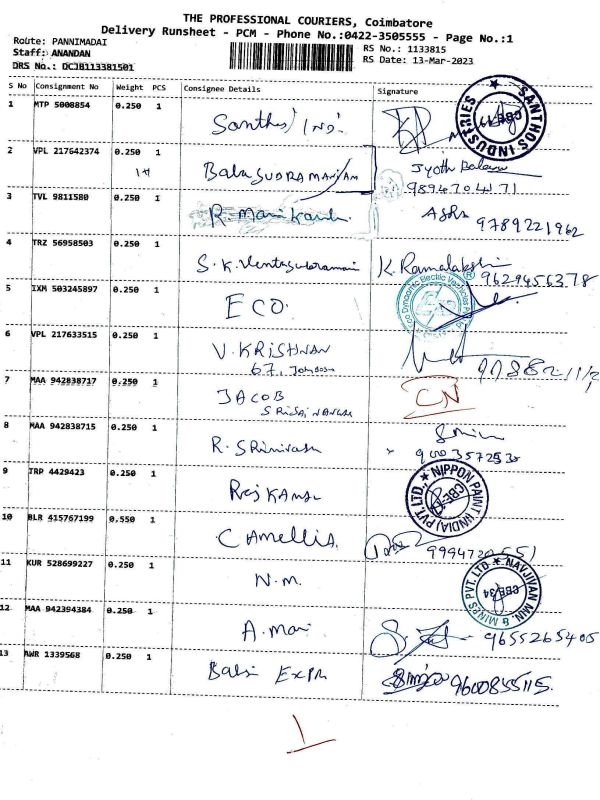 THE PROFESSIONAL COURIERS, Coimbatore
Delivery Runsheet - PCM - Phone No.:0422-3505555 - Page No.:1
Route: PANNIMADAI
RS No.: 1133815
Staff: ANANDAN
RS Date: 13-Mar-2023
DRS No.: DCJB113381501
S No Consignment No Weight PCS Consignee Details Signature
1 MTP 5008854 0.250 1 Santhos Ind. SANTHOS INDUSTRIES CBE
2 VPL 217642374 0.250 1 BalaSUBRAMANIAM Jyoth
9894704471
3 TVL 9811580 0.250 1 R. Manikand 9789221962
4 TRZ 56958503 0.250 1 S.K. K. Ramalakshi 9629456378
5 IXM 503245897 0.250 1 ECO.
6 VPL 217633515 0.250 1 V. KRISHNAN
67,
7 MAA 942838717 0.250 1 JACOB CN
SRISAI NAGAR
8 MAA 942838715 0.250 1 R. SRinivasan
9 TRP 4429423 0.250 1 NIPPON PAINT (INDIA) PVT. LTD., CBE
10 BLR 415767199 0.550 1 CAMELLIA
11 KUR 528699227 0.250 1 N.M. NAVJIVAN MIN. & MINES PVT. LTD CBE/34
12 MAA 942394384 0.250 1 A. Mani 9655265405
13 AWR 1339568 0.250 1 9600855115
1